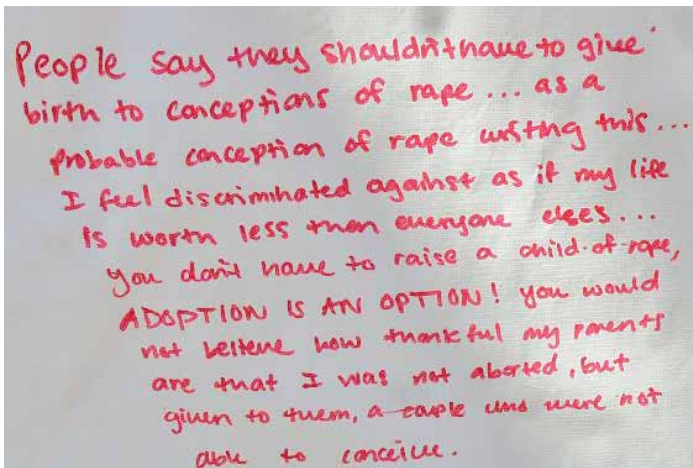 People say they shouldn't have to give
birth to conceptions of rape... as a
probable conception of rape writing this...
I feel discriminated against as if my life
is worth less than everyone elses...
you don't have to raise a child-of-rope,
ADOPTION IS AN OPTION! you would
not believe how thankful my parents
are that I was not aborted, but
given to them, a couple who were not
able to conceive.